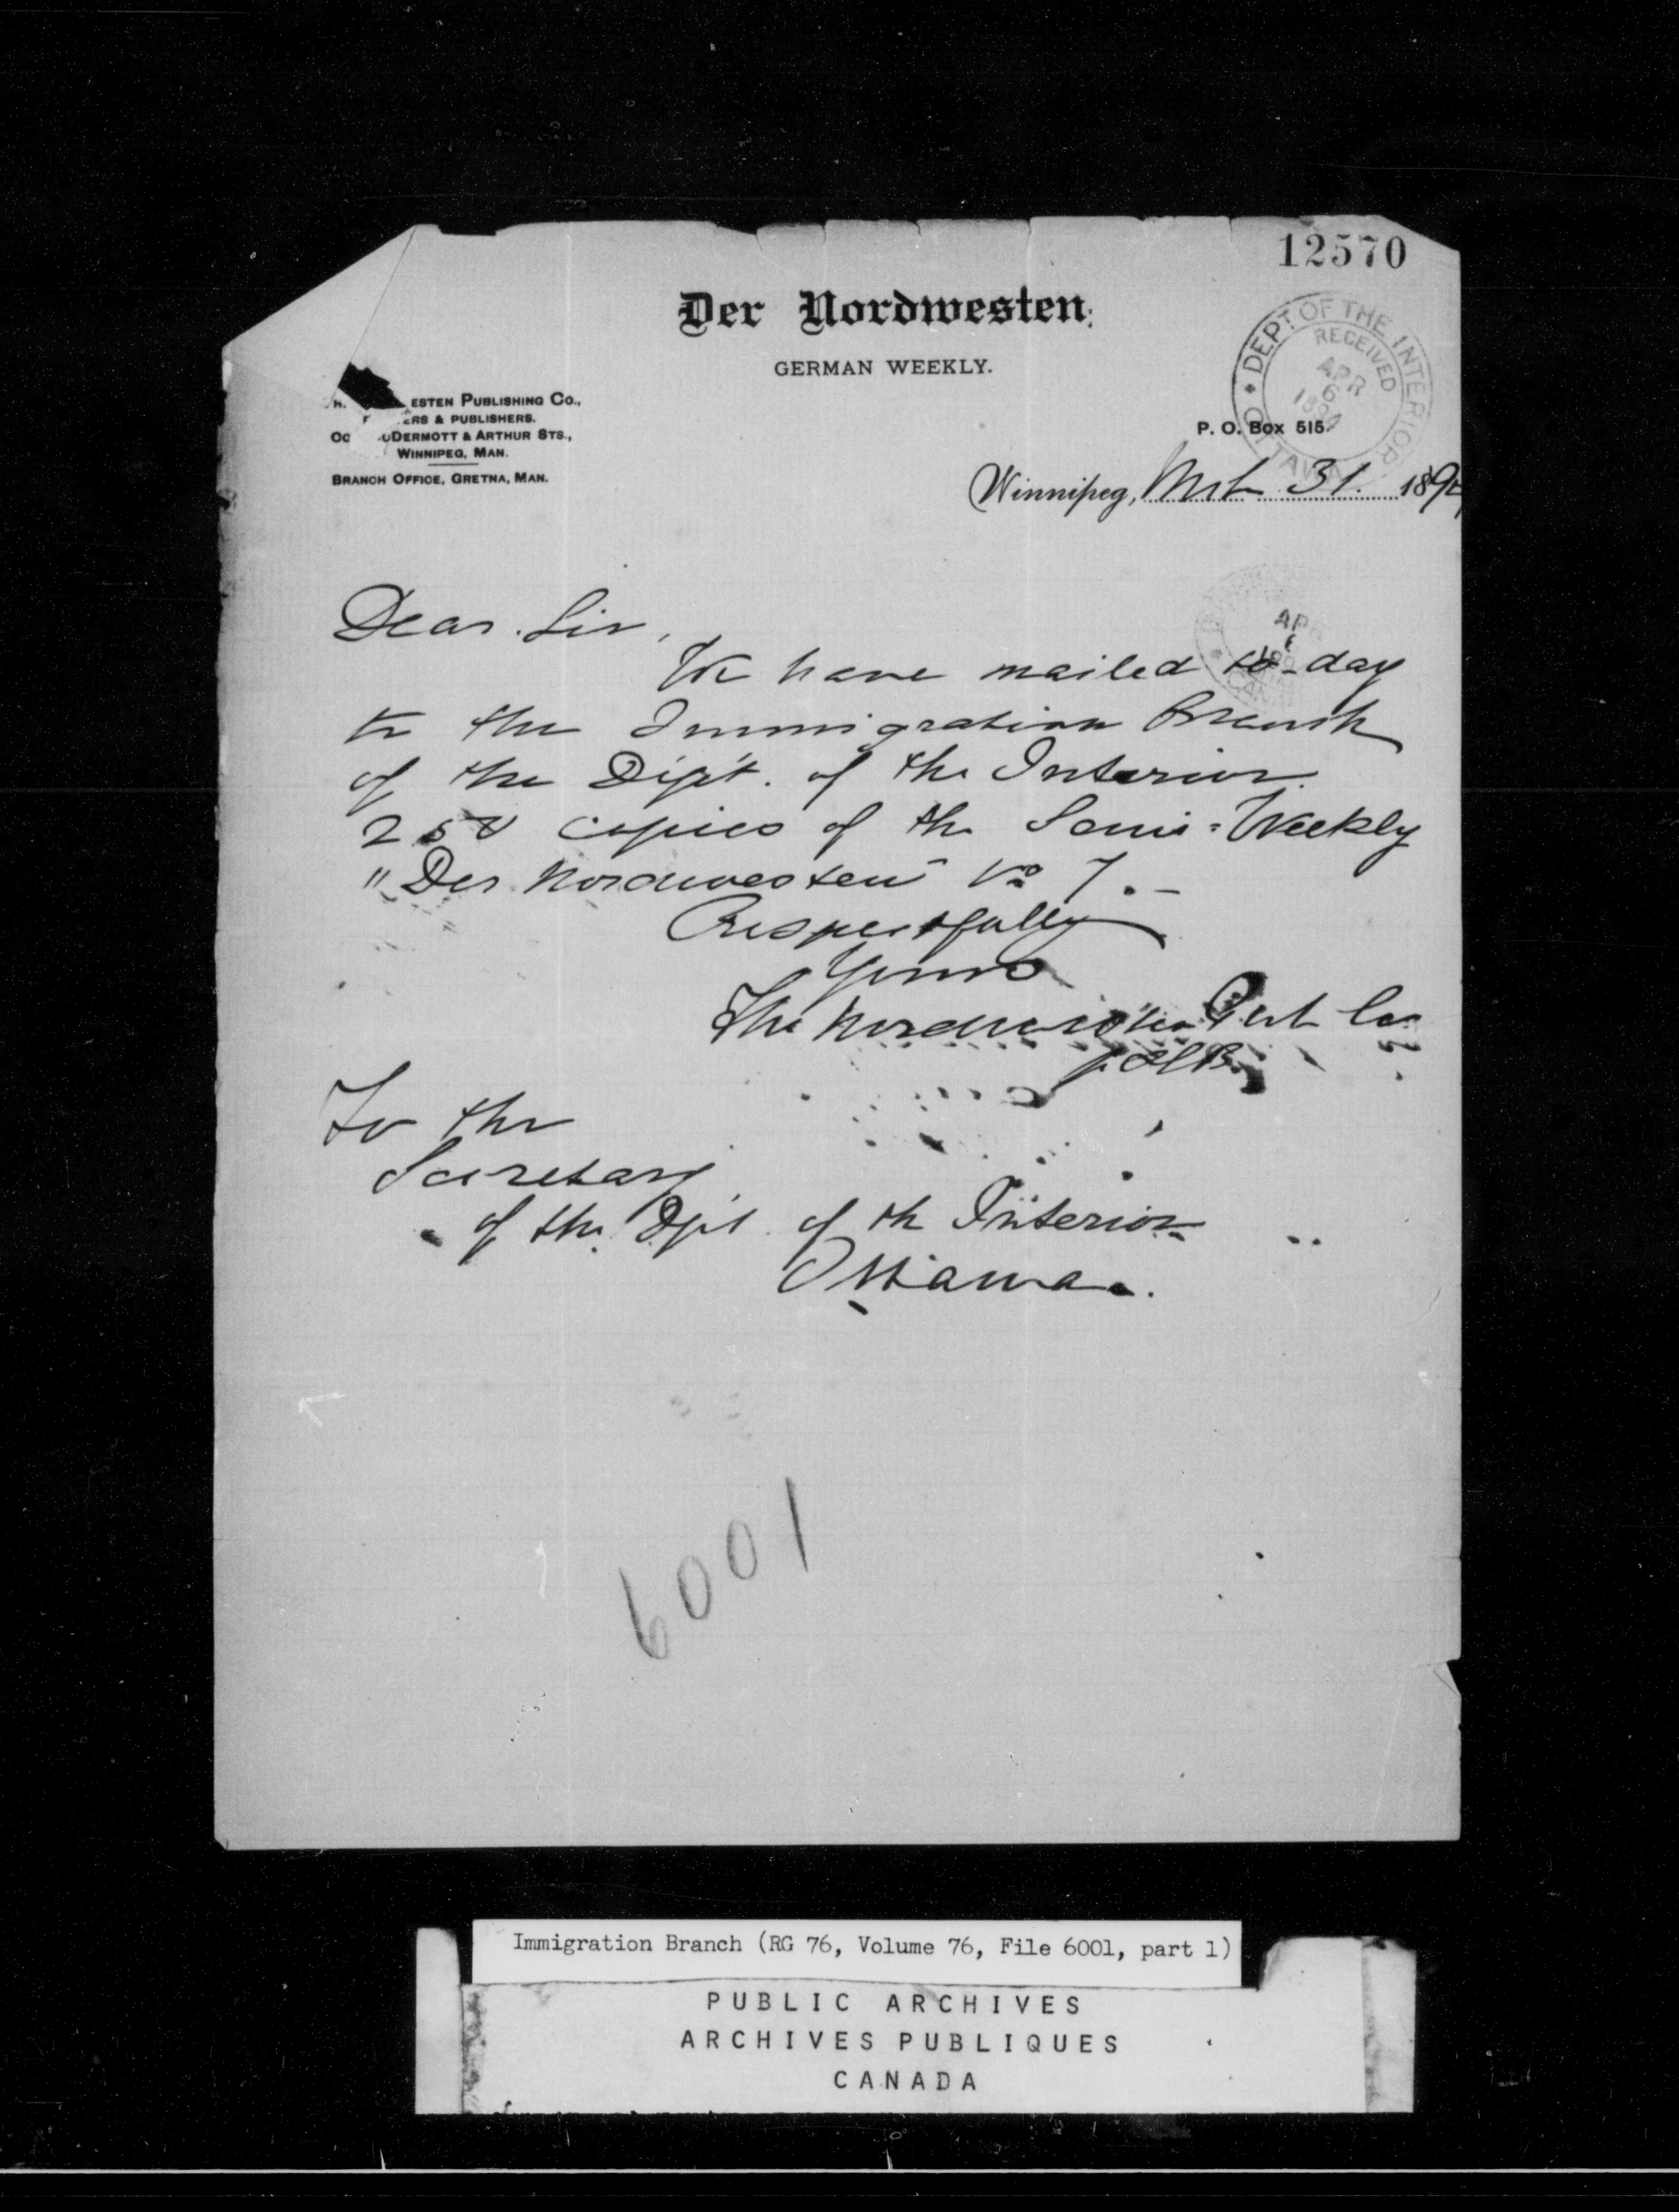 12570
Der Nordwesten.
GERMAN WEEKLY.
DEPT OF THE INTERIOR
RECEIVED
APR
6
1894
OTTAWA
ESTEN PUBLISHING CO.,
ERS & PUBLISHERS.
DERMOTT & ARTHUR STS.,
WINNIPEG, MAN.
BRANCH OFFICE, GRETNA, MAN.
P. O. Box 515.
Winnipeg, Mch 31. 1894
Dear Sir,
We have mailed to-day
to the Immigration Branch
of the Dep't. of the Interior
250 copies of the Semi=Weekly
"Der Nordwesten" No 7.-
Respectfully
Yours
The Nordwesten Publ Co
To the
Secretary
of the Dpt. of the Interior
Ottawa.
APR
6
6001
Immigration Branch (RG 76, Volume 76, File 6001, part 1)
PUBLIC ARCHIVES
ARCHIVES PUBLIQUES
CANADA